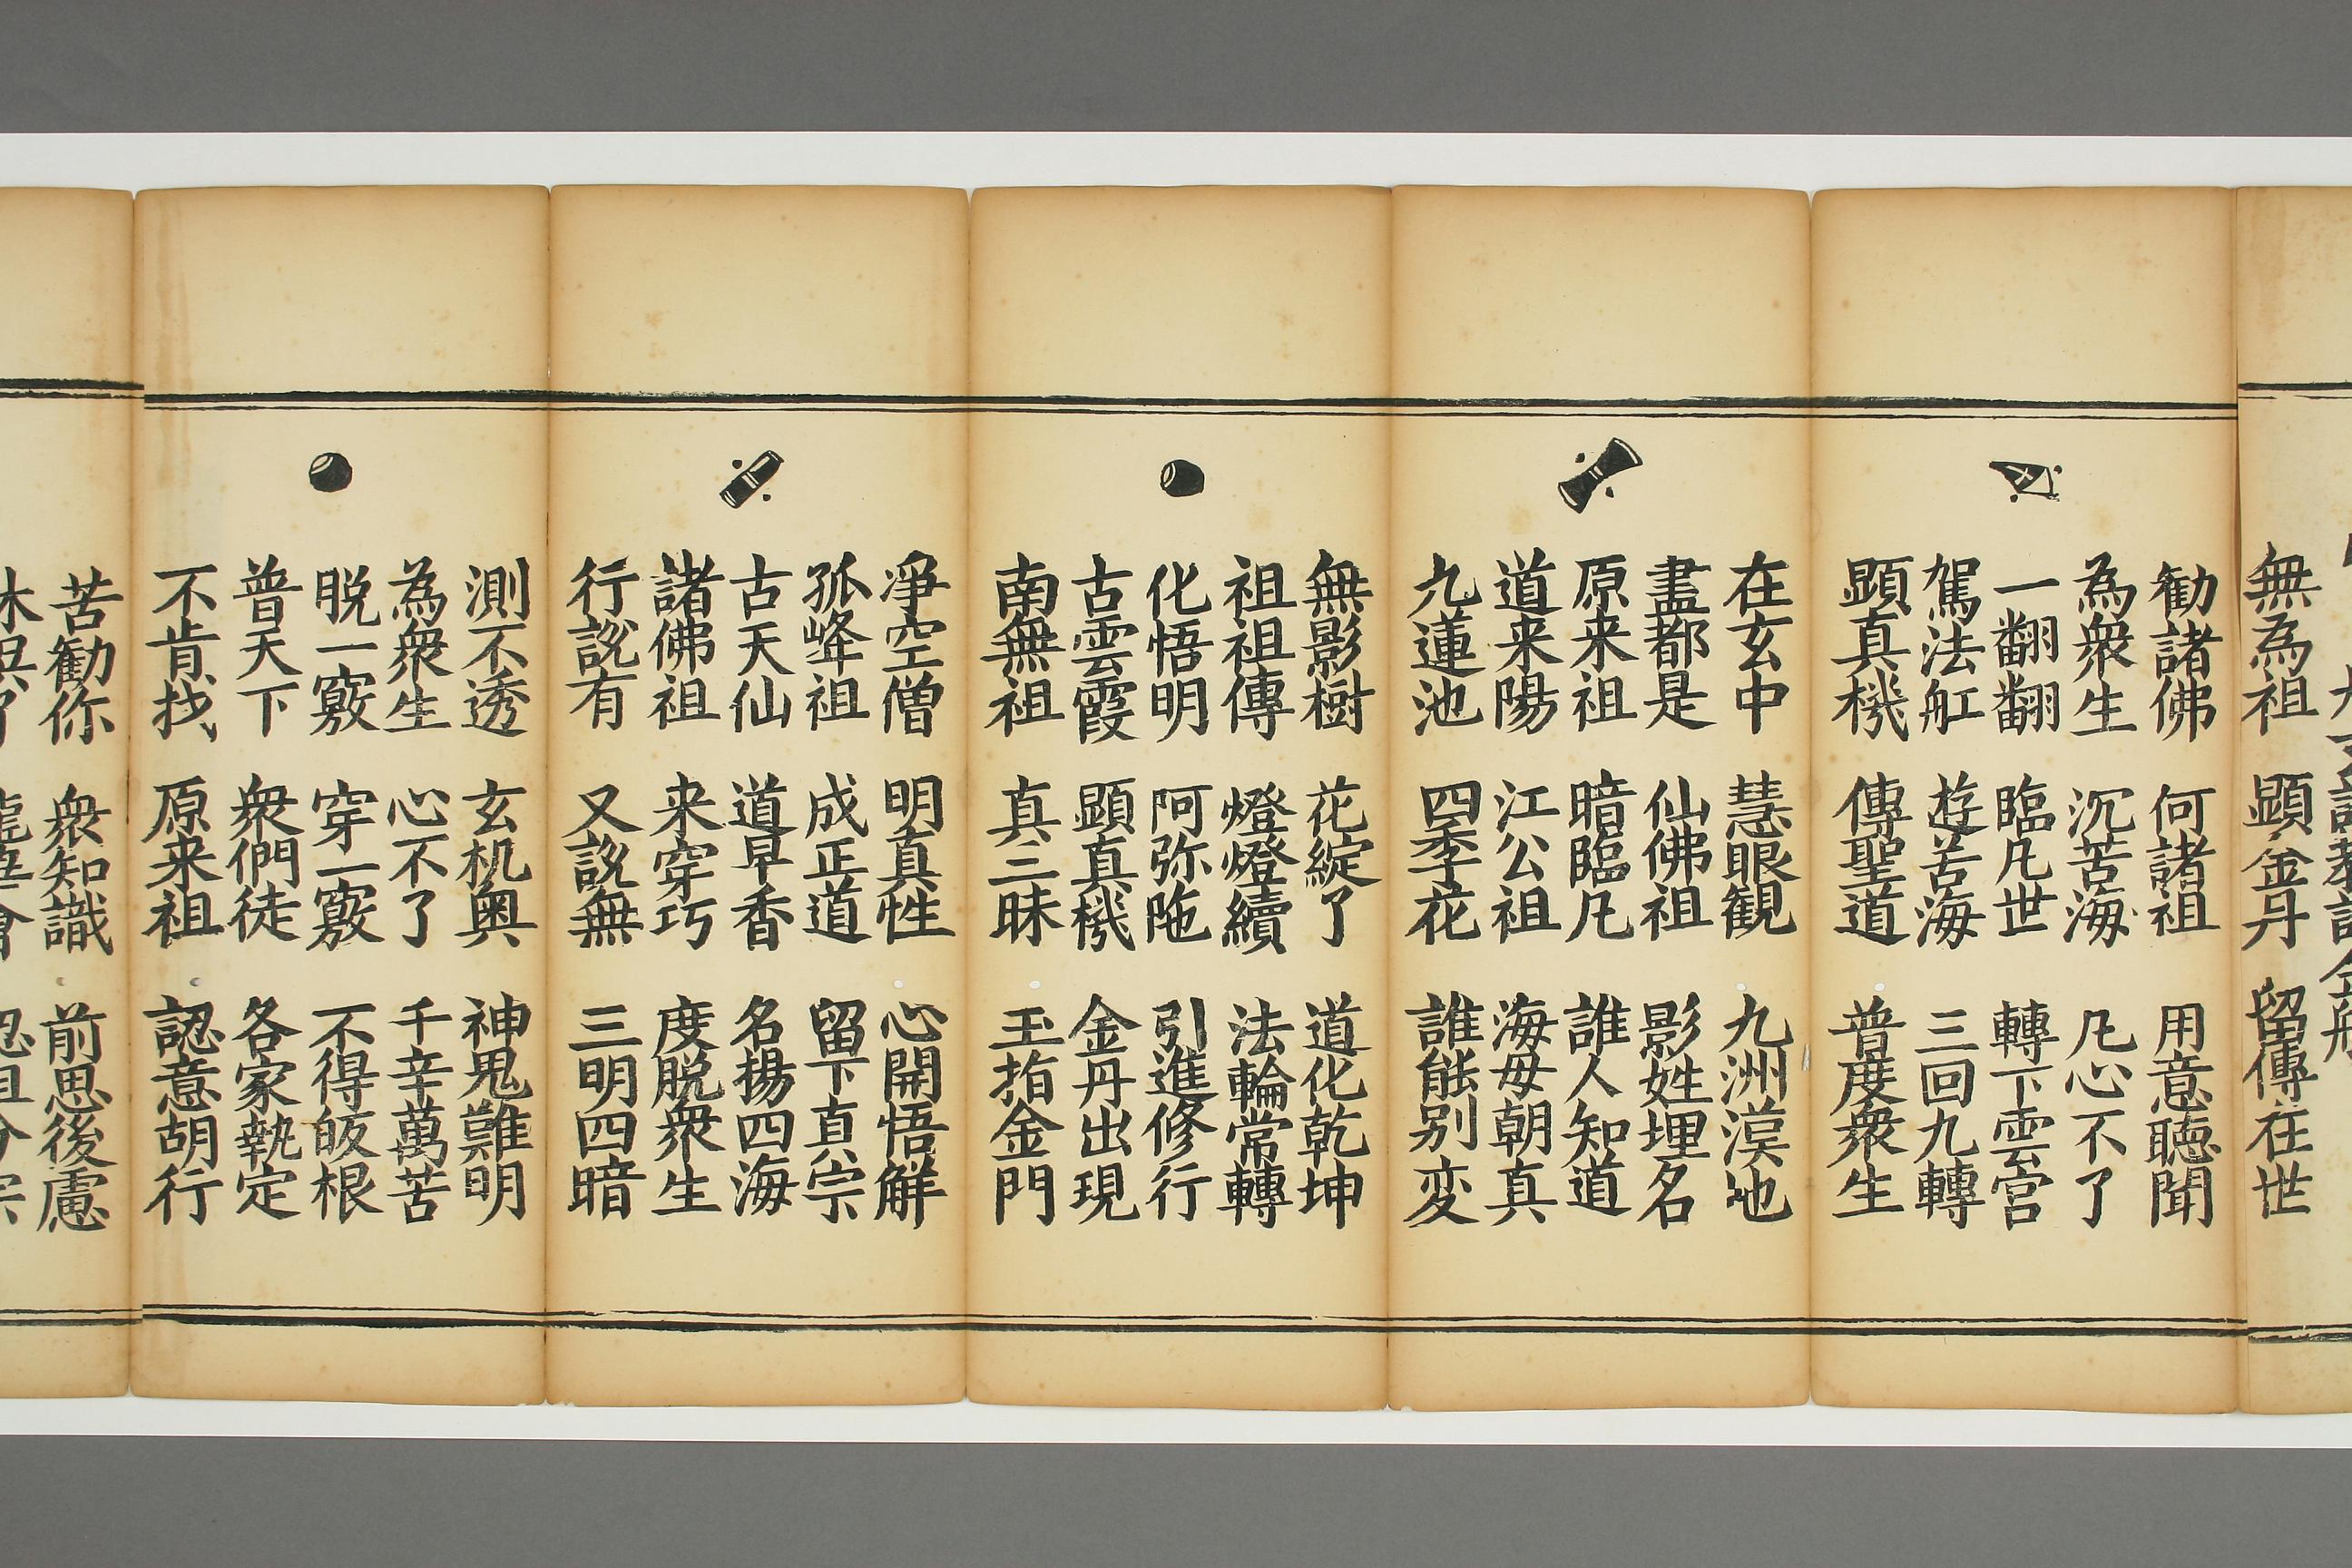 無為祖 顕金丹 留傳在世
勸諸佛 何諸祖 用意聴聞
為衆生 沉苦海 凡心不了
一翻翻 臨凡世 轉下雲宮
駕法舡 遊苦海 三回九轉
顕真機 傳聖道 普度衆生
在玄中 慧眼観 九洲漠地
盡都是 仙佛祖 影姓埋名
原来祖 暗臨凡 誰人知道
道来陽 江公祖 海母朝真
九蓮池 四季花 誰能别変
無影樹 花綻了 道化乾坤
祖祖傳 燈燈續 法輪常轉
化悟明 阿弥陁 引進修行
古雲霞 顕真機 金丹出現
南無祖 真三昧 玉指金門
凈空僧 明真性 心開悟觧
孤峰祖 成正道 留下真宗
古天仙 道早香 名揚四海
諸佛祖 来穿巧 度脱衆生
行説有 又説無 三明四暗
測不透 玄机奥 神鬼難明
為衆生 心不了 千辛萬苦
脱一竅 穿一竅 不得皈根
普天下 衆們徒 各家執定
不肯找 原来祖 認意胡行
苦勸你 衆知識 前思後慮